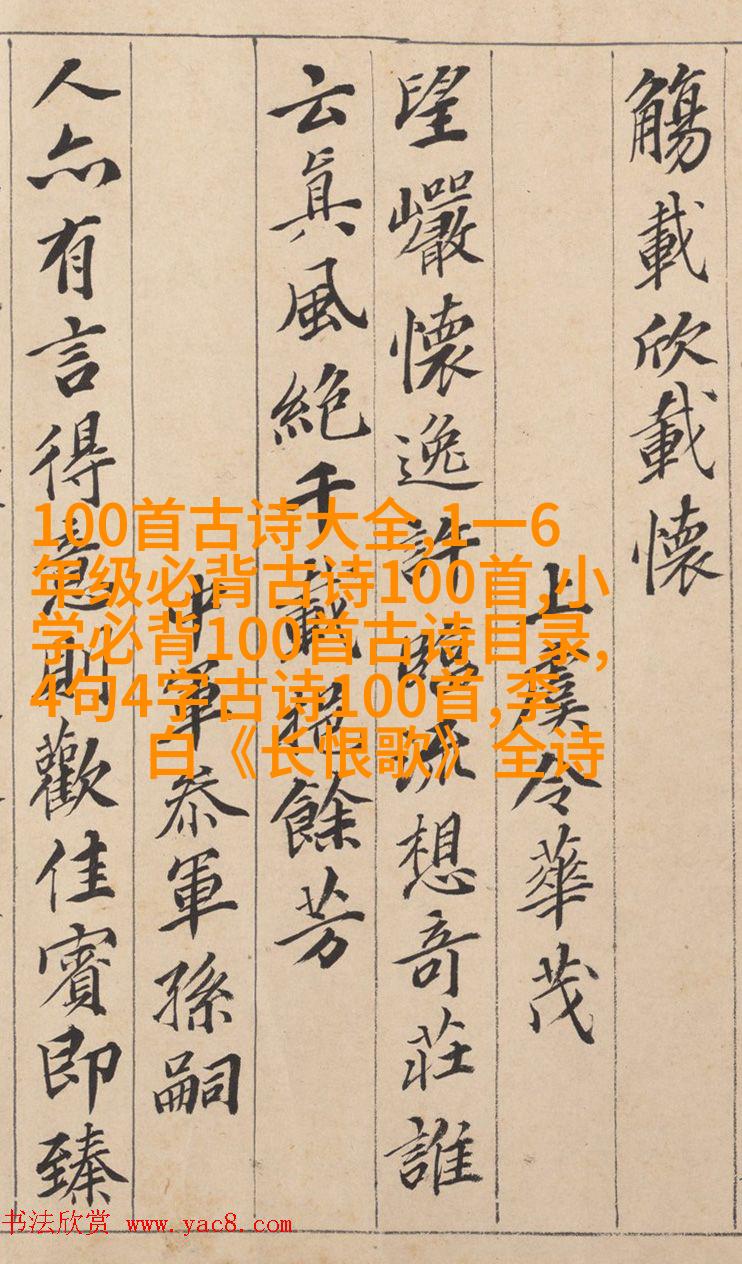 觴載欣載懷
上虞令華茂
望巖懷逸許臨流想奇莊誰
云眞風絕千載挹餘芳
中軍參軍孫嗣
人亦有言得意則歡佳賓即臻
100首古诗大全,1一6
年级必背古诗100首,小
学必背100首古诗目录,
4句4字古诗100首,李
白《长恨歌》全诗
书法欣赏 www.yac8.com